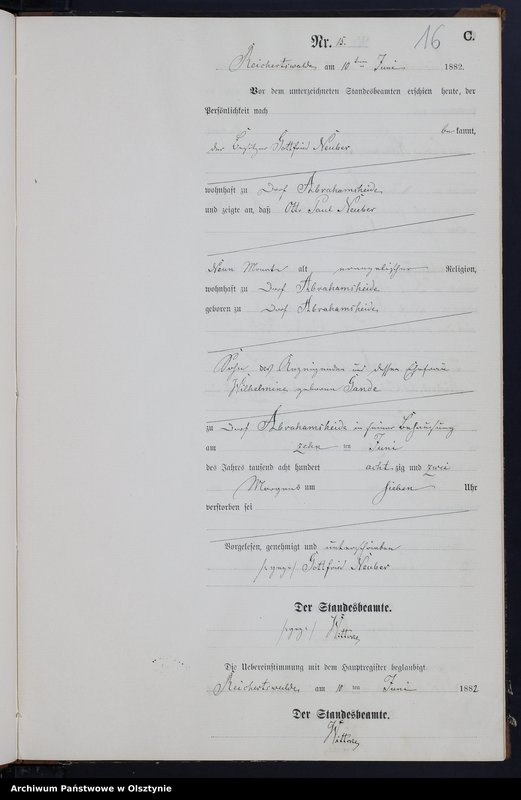 16 C.
Nr. 15.
Reichertswalde, am 10 ten Juni 1882.
Vor dem unterzeichneten Standesbeamten erschien heute, der
Persönlichkeit nach
be kannt,
der Besitzer Gottfried Neuber
wohnhaft zu Dorf Abrahamsheide
und zeigte an, daß Otto Paul Neuber
Neun Monate alt evangelischer Religion,
wohnhaft zu Dorf Abrahamsheide
geboren zu Dorf Abrahamsheide,
Sohn des Anzeigenden und dessen Ehefrau
Wilhelmine geborenen Gande
zu Dorf Abrahamsheide in seiner Behausung
am zehn ten Juni
des Jahres tausend acht hundert acht zig und zwei
Morgens um sieben Uhr
verstorben sei
Vorgelesen, genehmigt und unterschrieben
/:gez:/ Gottfried Neuber
Der Standesbeamte.
/:gez:/
Die Uebereinstimmung mit dem Hauptregister beglaubigt.
Reichertswalde, am 10 ten Juni 1882
Der Standesbeamte.
Archiwum Państwowe w Olsztynie